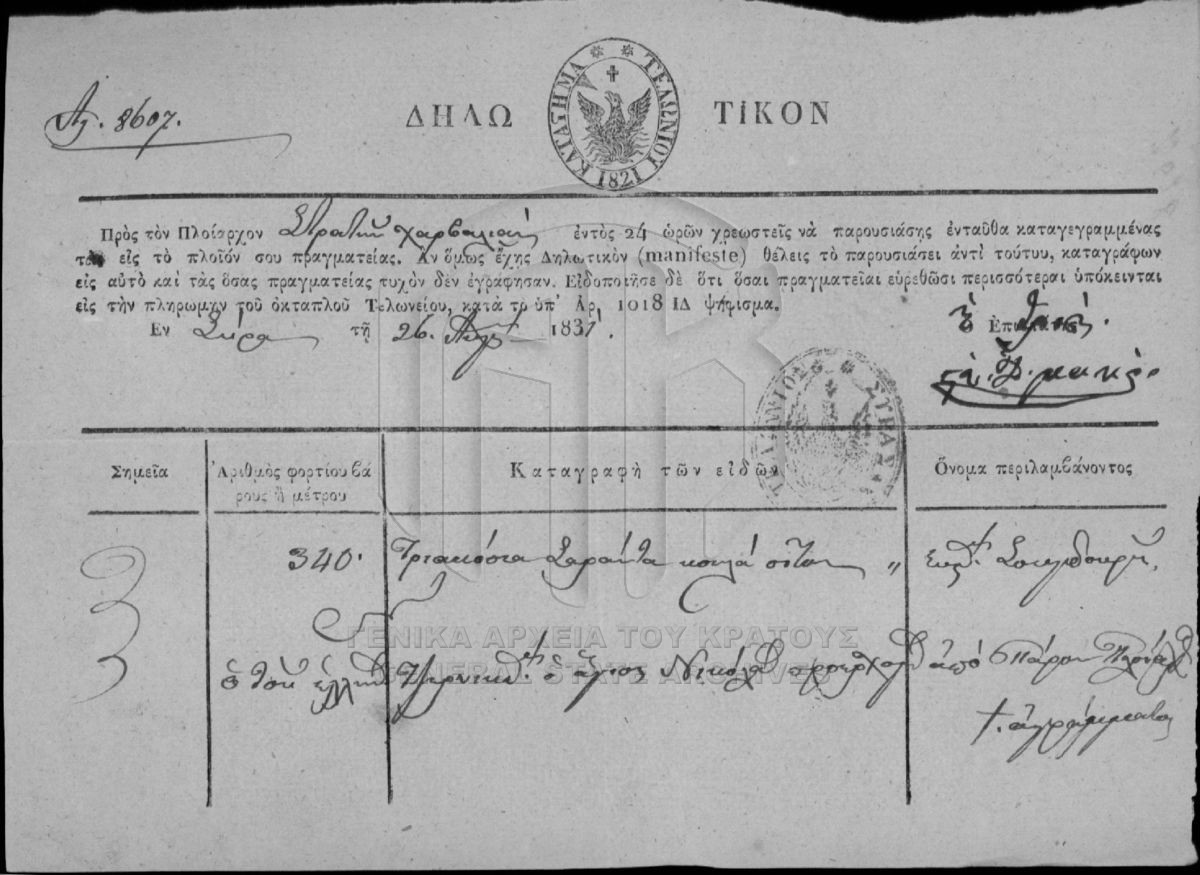 Αρ. 8607.
ΔΗΛΩ ΤΙΚΟΝ
ΚΑΤΑΣΤΗΜΑ ΤΕΛΩΝΙΟΥ 1821
Πρὸς τὸν Πλοίαρχον Στρατὴν ἐντὸς 24 ὡρῶν χρεωστεῖς νὰ παρουσιάσης ἐνταῦθα καταγεγραμμένας
τὰς εἰς τὸ πλοῖόν σου πραγματείας. Ἀν ὅμως ἔχης Δηλωτικὸν (manifeste) θέλεις τὸ παρουσιάσει ἀντὶ τούτυυ, καταγράφων
εἰς αὐτὸ καὶ τὰς ὅσας πραγματείας τυχὸν δὲν ἐγράφησαν. Εἰδοποιῆσε δὲ ὅτι ὅσαι πραγματεῖαι εὑρεθῶσι περισσότεραι ὑπόκεινται
εἰς τὴν πληρωμην τοῦ ὀκταπλοῦ Τελωνείου, κατὰ το ὑπ' Ἀρ. 1018 ΙΔ ψήφισμα.
Εν Σύρα τῇ 26. Αὐγ. 1831.
ΤΕΛΩΝΙΟΝ ΣΥΡΑΣ
Σημεῖα
Ἀριθμὸς φορτίου βά
ρους ἢ μέτρου
Καταγραφὴ τῶν εἰδῶν
Ὄνομα περιλαμβάνοντος
340. Τριακόσια Σαράντα κοιλά σῖτον "
ὁ ἅγιος Νικόλαος ἀπὸ Πάρον
ἀγράμματος
ΓΕΝΙΚΑ ΑΡΧΕΙΑ ΤΟΥ ΚΡΑΤΟΥΣ
GENERAL STATE ARCHIVES